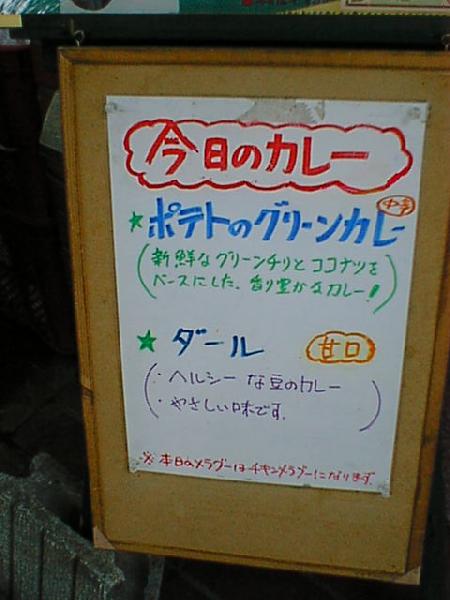 今日のカレー
★ポテトのグリーンカレー 中辛
(新鮮なグリーンチリとココナツを
ベースにした、香り豊かなカレー!)
★ダール 甘口
(・ヘルシーな豆のカレー
・やさしい味です。)
※本日のメラグーはチキンメラグーになります。